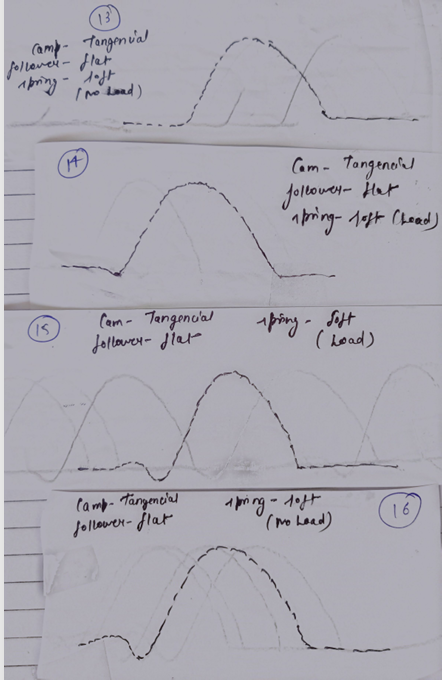 13
Camp- Tangencial
follower- flat
spring- soft
(No Load)
14
Cam- Tangencial
follower- flat
spring- soft (Load)
15
Cam- Tangencial
follower- flat
spring- soft
(Load)
Camp- Tangencial
follower- flat
spring- soft
(No Load)
16